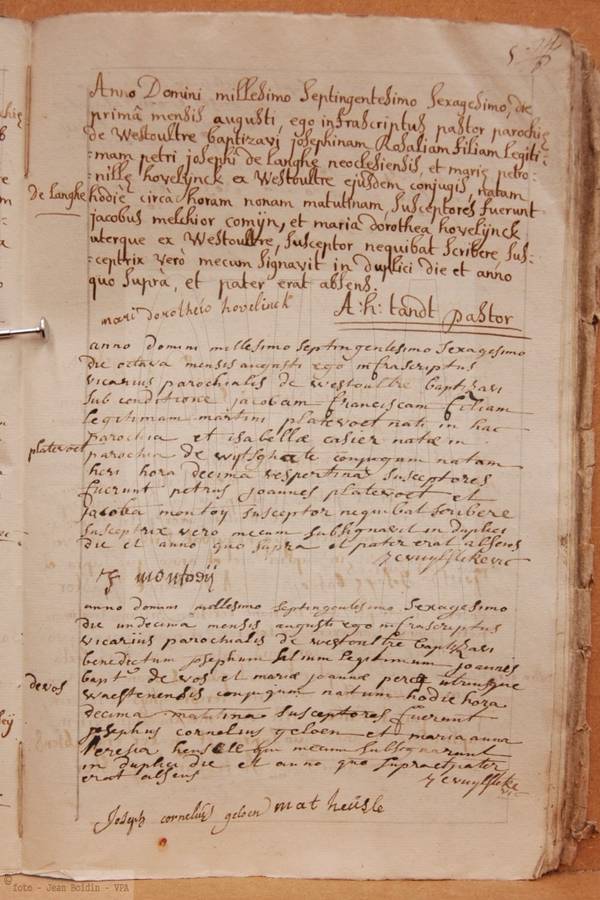 Anno Domini millesimo septingentesimo sexagesimo, die
primâ mensis augusti, ego infrascriptus pastor parochię
de Westoultre baptizavi josephinam Rosaliam filiam legiti-
-mam petri josephi de langhe neoclesiensis, et marię petro-
-nillę hovelijnck ex Westoultre ejusdem conjugis, natam
de Langhe
hodiè circà horam nonam matutinam, susceptores fuerunt
jacobus melchior comijn, et maria dorothea hovelijnck
uterque ex Westoultre, susceptor nequibat scribere, sus-
-ceptrix verò mecum signavit in duplici die et anno
quo suprà, et pater erat absens.
mari dorotheo hovelinck
A:h: tandt pastor
anno domini millesimo septingentesimo sexagesimo
die octava mensis augusti ego infrascriptus
vicarius parochialis de westoultre baptizavi
sub conditione jacobam franciscam filiam
legitimam martini platevoet nati in hac
platevoet
parochia et isabellæ casier natæ in
parochia de wytsghate conjugum natam
heri hora decima vespertina susceptores
fuerunt petrus joannes platevoet et
jacoba montoy susceptor nequibat scribere
susceptrix vero mecum subsignavit in duplici
die et anno quo supra et pater erat absens
montodij
anno domini millesimo septingentesimo sexagesimo
die undecima mensis augusti ego infrascriptus
vicarius parochialis de westoultre baptizavi
benedictum josephum filium legitimum joannis
de vos
bapt. de vos et mariæ joannæ utriusque
waestenensis conjugum natum hodie hora
decima matutina susceptores fuerunt
josephus cornelius geloen et maria anna
teresia qui mecum subsignarunt
in duplici die et anno quo supra et pater
erat absens
Joseph cornelius geloen mat heusle
© foto - Jean Boidin - VPA